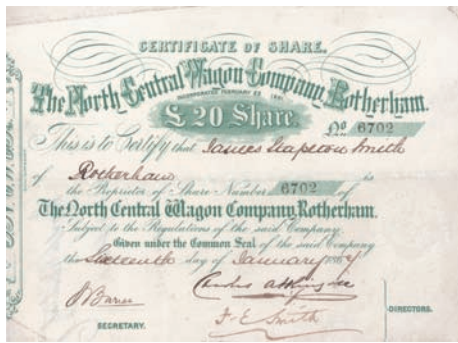 CERTIFICATE OF SHARE.
The North Central Wagon Company, Rotherham.
INCORPORATED FEBRUARY 1861
£20 Share.
No 6702
This is to Certify that James Stapeton Smith
of Rotherham is
the Proprietor of Share Number 6702 of
The North Central Wagon Company, Rotherham.
Subject to the Regulations of the said Company
Given under the Common Seal of the said Company
the Sixteenth day of January
DIRECTORS.
F. E. Smith
SECRETARY.